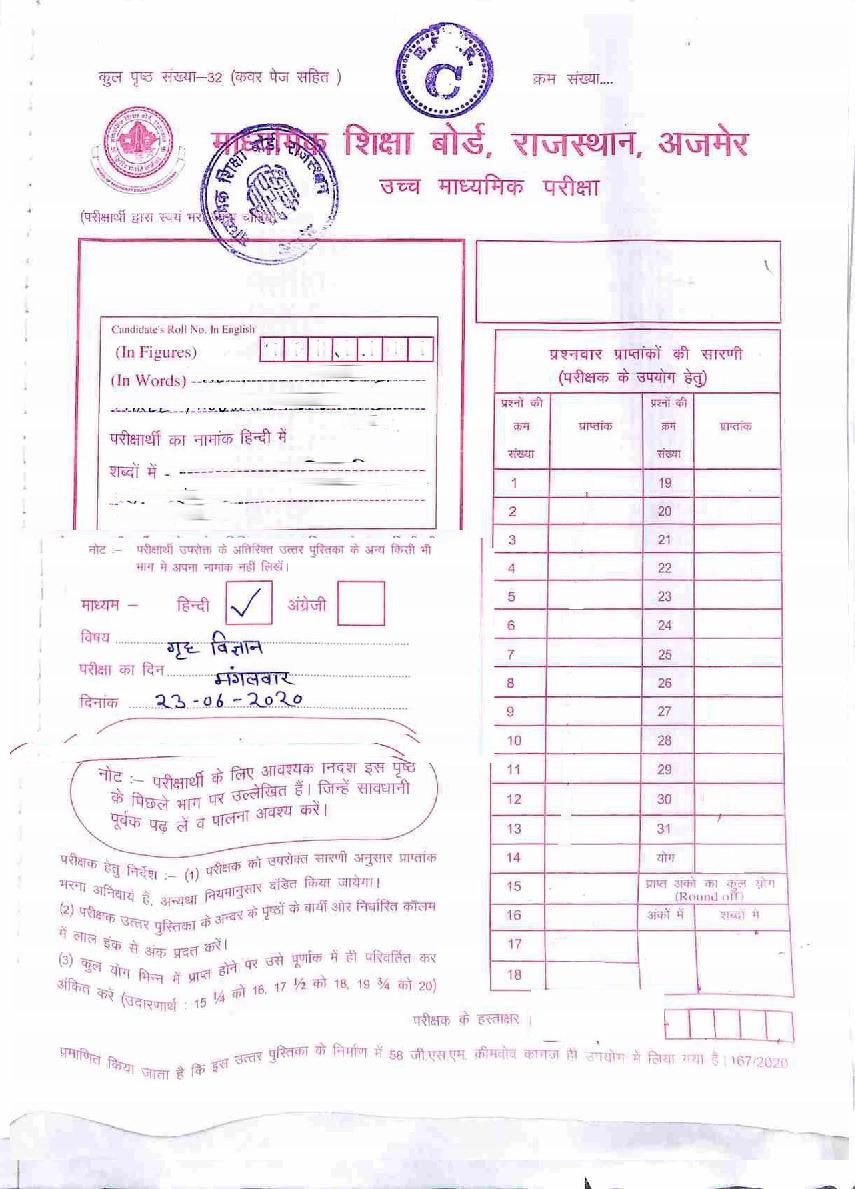 कुल पृष्ठ संख्या–32 (कवर पेज सहित )
क्रम संख्या....
C
माध्यमिक शिक्षा बोर्ड, राजस्थान, अजमेर
उच्च माध्यमिक परीक्षा
(परीक्षार्थी द्वारा स्वयं
Candidate's Roll No. In English
(In Figures)
(In Words)
परीक्षार्थी का नामांक हिन्दी में
शब्दों में -
नोट :- परीक्षार्थी उपरोक्त के अतिरिक्त उत्तर पुस्तिका के अन्य किसी भी
भाग मे अपना नामांक नहीं लिखें।
माध्यम – हिन्दी ✓ अंग्रेजी
विषय गृह विज्ञान
परीक्षा का दिन मंगलवार
दिनांक 23-06-2020
नोट :- परीक्षार्थी के लिए आवश्यक निदश इस पृष्ठ
के पिछले भाग पर उल्लेखित हैं। जिन्हें सावधानी
पूर्वक पढ़ लें व पालना अवश्य करें।
परीक्षक हेतु निर्देश :- (1) परीक्षक को उपरोक्त सारणी अनुसार प्राप्तांक
भरना अनिवार्य है, अन्यथा नियमानुसार दंडित किया जायेगा।
(2) परीक्षक उत्तर पुस्तिका के अन्दर के पृष्ठों के बायीं ओर निर्धारित कॉलम
में लाल इंक से अंक प्रदत करें।
(3) कुल योग भिन्न में प्राप्त होने पर उसे पूर्णांक में ही परिवर्तित कर
अंकित करें (उदारणार्थ : 15 ¼ को 16, 17 ½ को 18, 19 ¾ को 20)
प्रश्नवार प्राप्तांकों की सारणी
(परीक्षक के उपयोग हेतु)
प्रश्नों की क्रम संख्या प्राप्तांक प्रश्नों की क्रम संख्या प्राप्तांक
1 19
2 20
3 21
4 22
5 23
6 24
7 25
8 26
9 27
10 28
11 29
12 30
13 31
14 योग
15 प्राप्त अंको का कुल योग (Round off)
16 अंकों में शब्दों में
17
18
परीक्षक के हस्ताक्षर।
प्रमाणित किया जाता है कि इस उत्तर पुस्तिका के निर्माण में 58 जी.एस.एम. क्रीमवोव कागज ही उपयोग में लिया गया है।167/2020